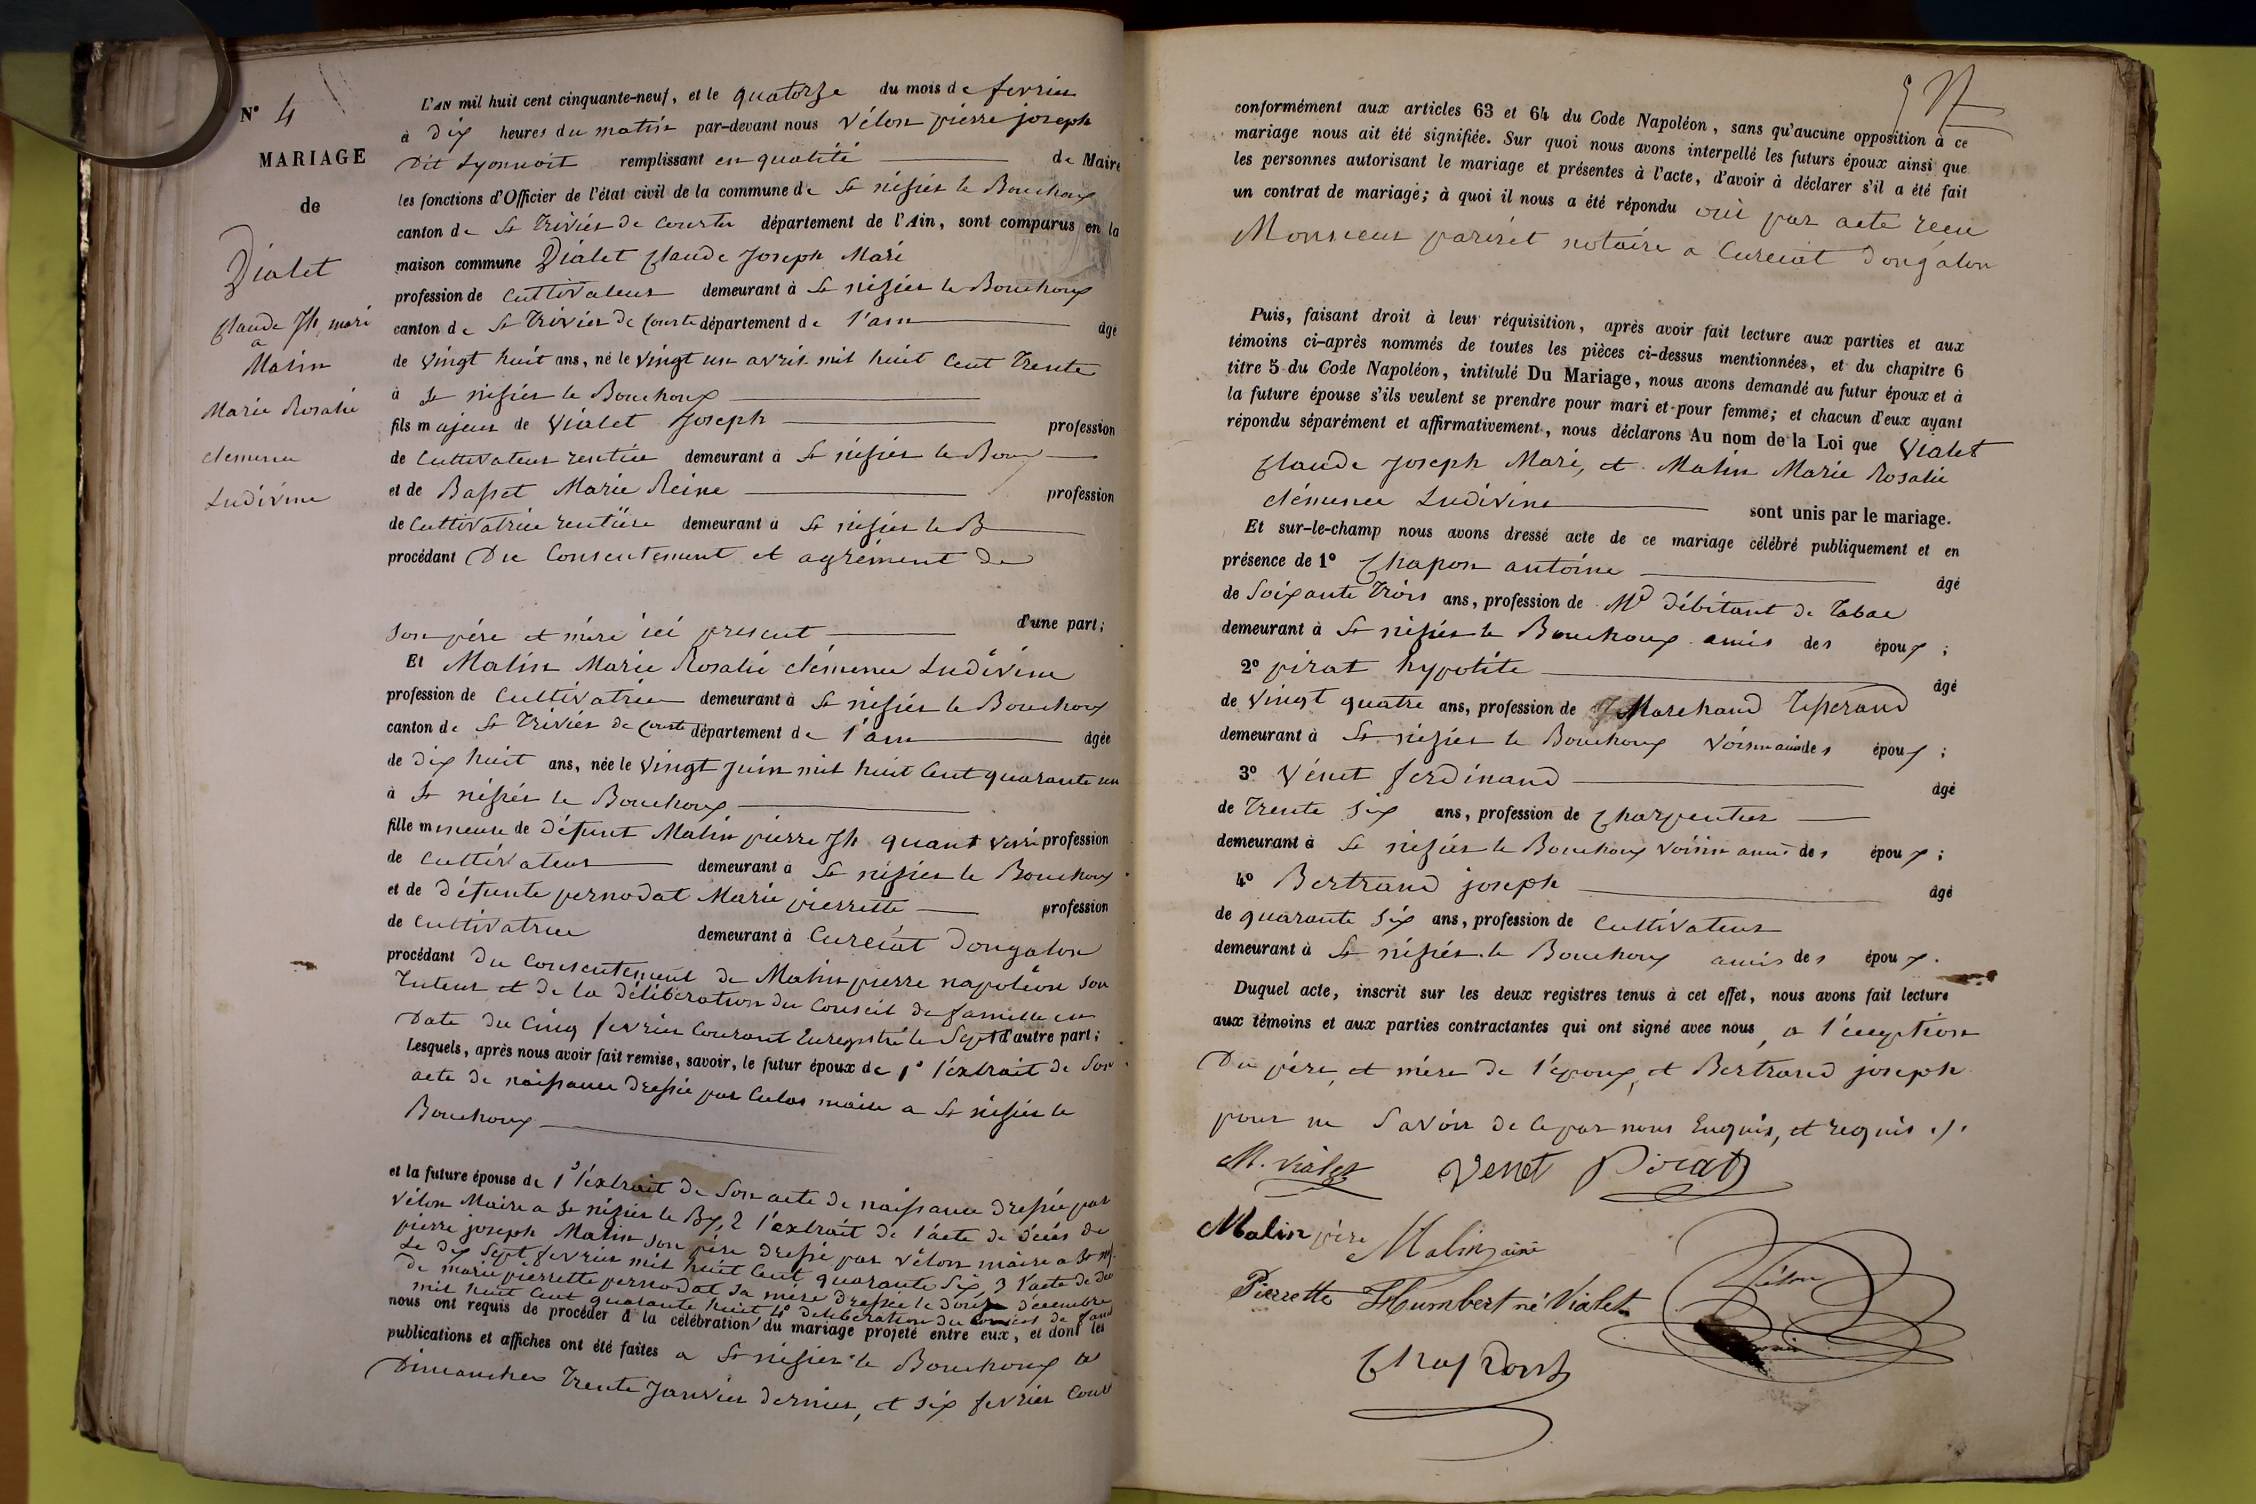 N° 4
MARIAGE
de
Vialet
Claude Jh mari
a
Malin
Marie Rosalie
clemence
Ludivine
L'AN mil huit cent cinquante-neuf, et le quatorze du mois de fevrier
à dix heures du matin par-devant nous Vélon pierre joseph
Dit Lyonnoit remplissant en qualité de Maire
les fonctions d'Officier de l'état civil de la commune de St nisier le Bouchoux
canton de St Trivier de Courte département de l'Ain, sont comparus en la
maison commune Vialet Claude Joseph Mari
profession de Cultivateur demeurant à St nizier le Bouchoux
canton de St Trivier de Courte département de l'ain âgé
de vingt huit ans, né le vingt un avril mil huit cent trente
à St nisier le Bouchoux
fils majeur de Vialet Joseph profession
de Cultivateur rentier demeurant à St nisier le Boux
et de Basset Marie Reine profession
de Cultivatrice rentière demeurant à St nisier le B
procédant Du Consentement et agrément de
son père et mère ici present d'une part;
Et Malin Marie Rosalie clémence Ludivine
profession de Cultivatrice demeurant à St nisier le Bouchoux
canton de St Trivier de Courte département de l'ain âgée
de dix huit ans, née le vingt Juin mil huit Cent quarante un
à St nisier le Bouchoux
fille mineure de défunt Malin pierre Jh quant vivé profession
de Cultivateur demeurant à St nisier le Bouchoux
et de défunte pernodat Marie pierrette profession
de Cultivatrice demeurant à Curciat Dongalon
procédant du Consentement de Malin pierre napoléon son
Tuteur et de la délibération du Conseil de famille en
Date du Cinq fevrier Courant Enregistré le Sept d'autre part;
Lesquels, après nous avoir fait remise, savoir, le futur époux de 1° l'extrait de Son
acte de naissance Dressée par Culas maire a St nisier le
Bouchoux
et la future épouse de 1° l'extrait de Son acte de naissance Dressée par
Vélon Maire a St nisier le Bx, 2 l'extrait de l'acte de décès de
pierre joseph Malin son père Dressé par Vélon maire a St nis
Le dix Sept fevrier mil huit Cent quarante Six, 3 l'acte de dec
de marie pierrette pernodat sa mère Dressée le Douze Décembre
mil huit Cent quarante huit 4° deliberation du conseil de fam
nous ont requis de procéder à la célébration du mariage projeté entre eux, et dont les
publications et affiches ont été faites a St nisier le Bouchoux les
Dimanches Trente Janvier dernier, et Six fevrier Cour
conformément aux articles 63 et 64 du Code Napoléon, sans qu'aucune opposition à ce
mariage nous ait été signifiée. Sur quoi nous avons interpellé les futurs époux ainsi que
les personnes autorisant le mariage et présentes à l'acte, d'avoir à déclarer s'il a été fait
un contrat de mariage; à quoi il nous a été répondu oui par acte recu
Monsieur pariset notaire a Curciat Dongalon
Puis, faisant droit à leur réquisition, après avoir fait lecture aux parties et aux
témoins ci-après nommés de toutes les pièces ci-dessus mentionnées, et du chapitre 6
titre 5 du Code Napoléon, intitulé Du Mariage, nous avons demandé au futur époux et à
la future épouse s'ils veulent se prendre pour mari et pour femme; et chacun d'eux ayant
répondu séparément et affirmativement, nous déclarons Au nom de la Loi que Vialet
Claude Joseph Mari, et Malin Marie Rosalie
clémence Ludivine sont unis par le mariage.
Et sur-le-champ nous avons dressé acte de ce mariage célébré publiquement et en
présence de 1° Chapon antoine âgé
de Soixante Trois ans, profession de Md débitant de Tabac
demeurant à St nisier le Bouchoux amis des époux;
2° pirat hypolite âgé
de vingt quatre ans, profession de Marchand Tisserand
demeurant à St nisier le Bouchoux voisin amis des époux;
3° Vénet ferdinand âgé
de Trente Six ans, profession de Charpentier
demeurant à St nisier le Bouchoux voisin amis des époux;
4° Bertrand joseph âgé
de quarante Six ans, profession de Cultivateur
demeurant à St nisier le Bouchoux amis des époux.
Duquel acte, inscrit sur les deux registres tenus à cet effet, nous avons fait lecture
aux témoins et aux parties contractantes qui ont signé avec nous, a l'éxeption
Du père, et mère de l'époux, et Bertrand joseph
pour ne Savoir de Ce par nous Enquis, et requis ./.
M. Vialet Venet Pirat
Malin père Malin ainé
Pierrette Humbert né Vialet Vélon
Chapon